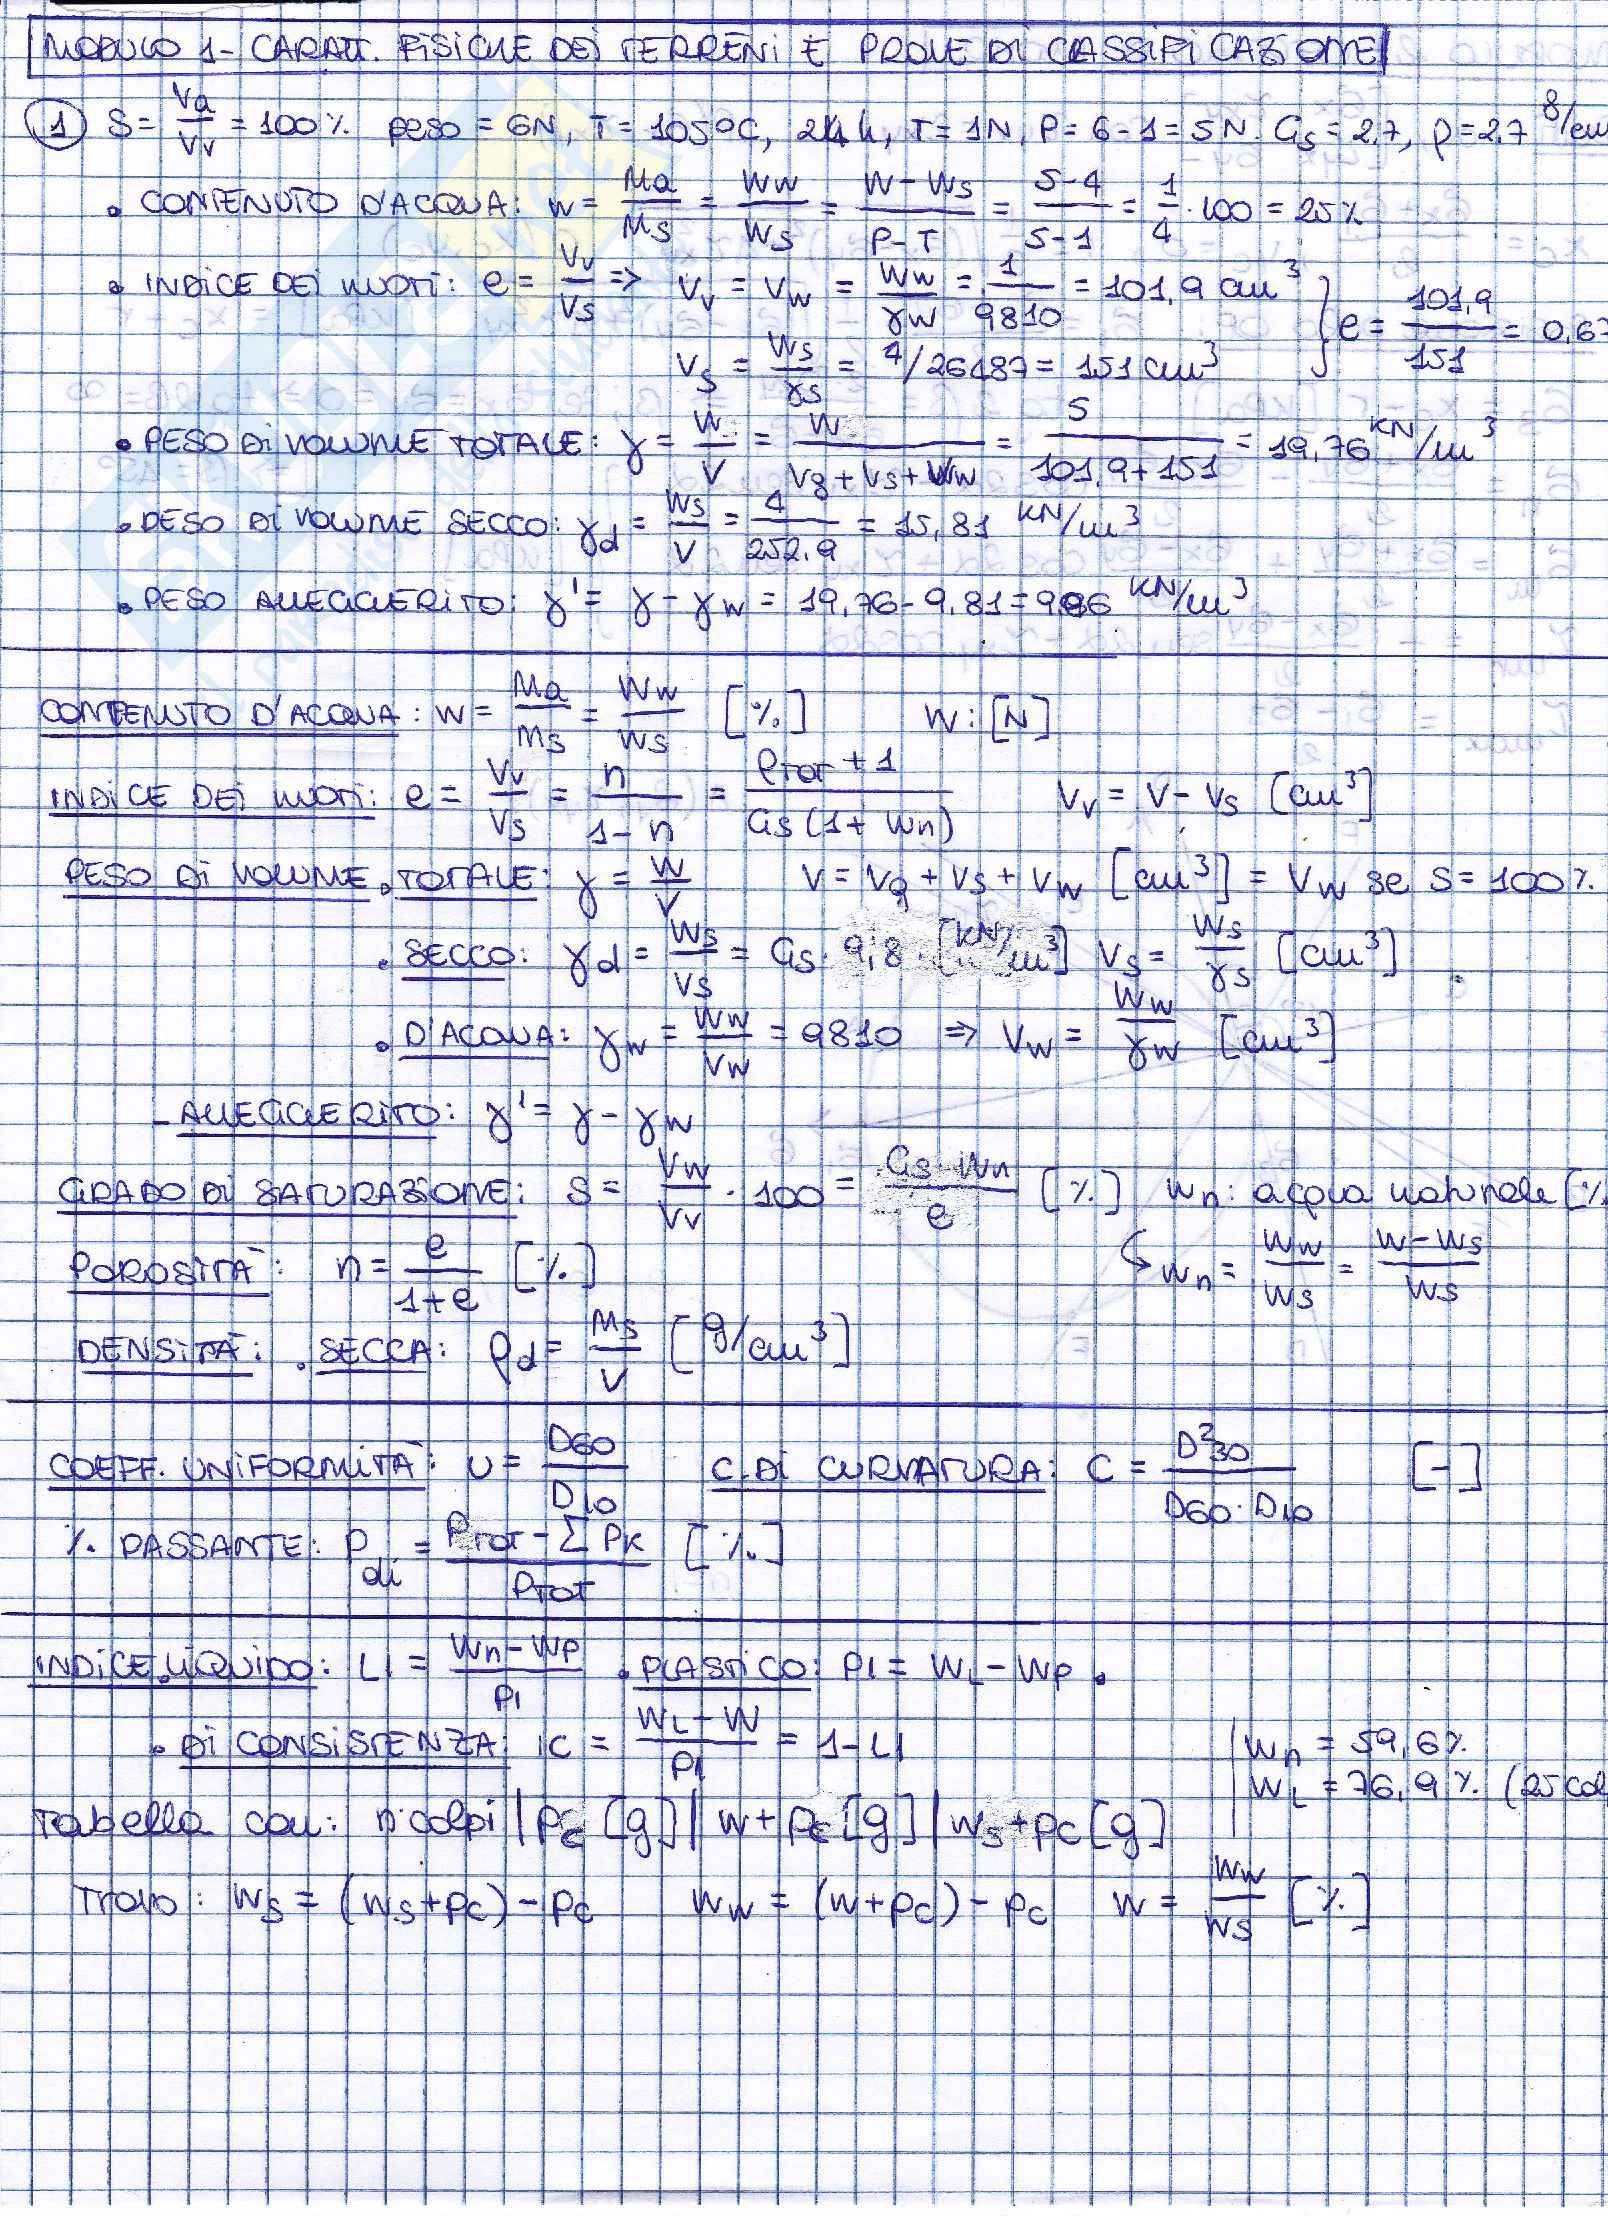 MODULO 1 - CARATT. FISICHE DEI TERRENI E PROVE DI CLASSIFICAZIONE
1 S = Va/Vv = 100% peso = 6N, T = 105°C, 24 h, T = 1N, P = 6-1 = 5N. Gs = 2.7, ρ = 2.7 g/cm
• CONTENUTO D'ACQUA: w = Ma/Ms = Ww/Ws = W-Ws/P-T = 5-4/5-1 = 1/4 · 100 = 25%
• INDICE DEI VUOTI: e = Vv/Vs => Vv = Vw = Ww/γw = 1/9810 = 101,9 cm³
Vs = Ws/γs = 4/26487 = 151 cm³ } e = 101,9/151 = 0,67
• PESO DI VOLUME TOTALE: γ = W/V = W/Vg+Vs+Vw = 5/101,9+151 = 19,76 KN/m³
• PESO DI VOLUME SECCO: γd = Ws/V = 4/252.9 = 15,81 KN/m³
• PESO ALLEGGERITO: γ' = γ - γw = 19,76 - 9,81 = 9,96 KN/m³
CONTENUTO D'ACQUA: w = Ma/Ms = Ww/Ws [%] W: [N]
INDICE DEI VUOTI: e = Vv/Vs = n/1-n = ρTOT + 1/Gs(1+Wn) Vv = V - Vs [cm³]
PESO DI VOLUME • TOTALE: γ = W/V V = Vg + Vs + Vw [cm³] = Vw se S = 100%
• SECCO: γd = Ws/Vs = Gs · 9,8 · [KN/m³] Vs = Ws/γs [cm³]
• D'ACQUA: γw = Ww/Vw = 9810 => Vw = Ww/γw [cm³]
- ALLEGGERITO: γ' = γ - γw
GRADO DI SATURAZIONE: S = Vw/Vv · 100 = Gs · Wn/e [%] wn: acqua naturale [%
POROSITÀ: n = e/1+e [%] ↳ wn = Ww/Ws = W-Ws/Ws
DENSITÀ: • SECCA: ρd = Ms/V [g/cm³]
COEFF. UNIFORMITÀ: U = D60/D10 C. DI CURVATURA: C = D²30/D60·D10 [-]
% PASSANTE: Pdi = PTOT - Σ PK/PTOT [%]
INDICE • LIQUIDO: LI = Wn-Wp/PI • PLASTICO: PI = WL - Wp •
• DI CONSISTENZA: IC = WL-W/PI = 1-LI
Wn = 59,6%
WL = 76,9% (25 col
Tabella con: n°colpi | pc [g] | w+pc [g] | ws+pc [g]
Trovo: Ws = (Ws+pc) - pc Ww = (w+pc) - pc W = Ww/Ws [%]